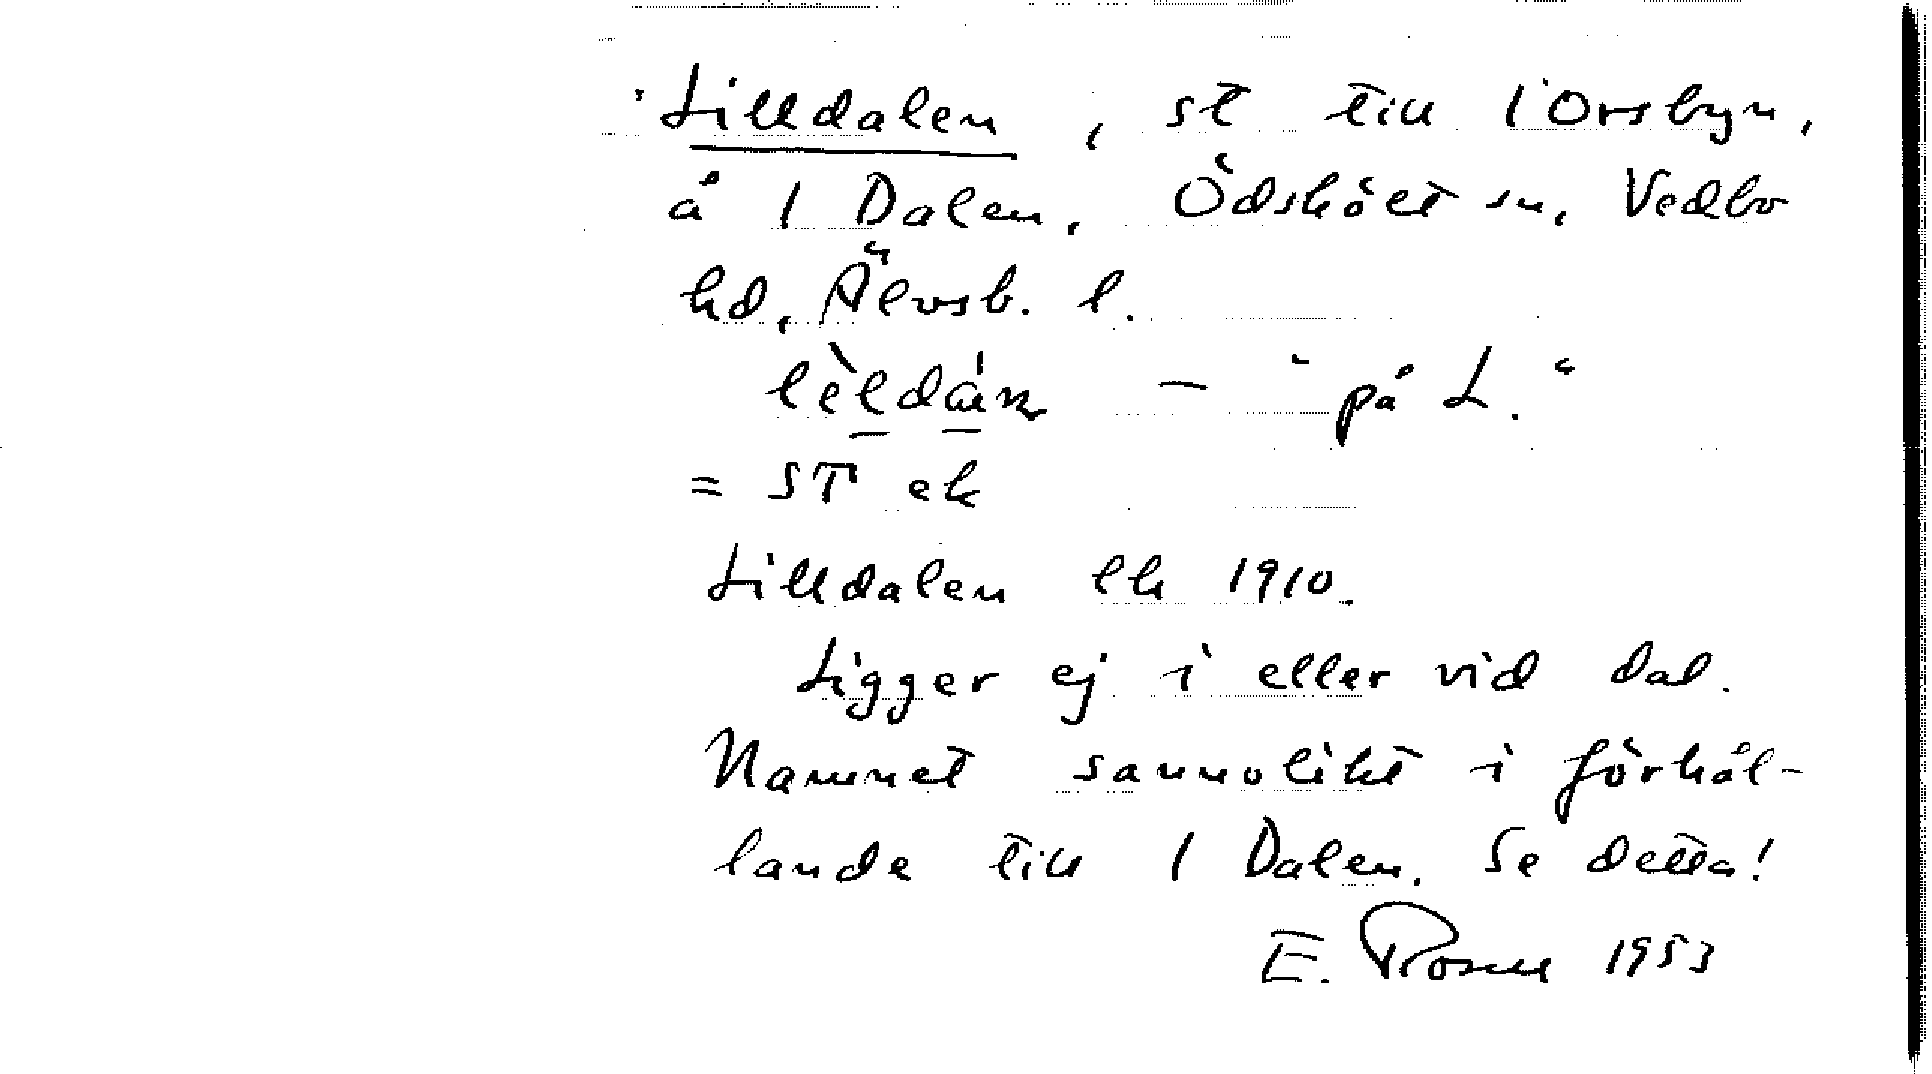 Lilldalen, st till 1 Orsbyn,
å 1 Dalen, Ödskölt sn, Vedbo
hd, Älvsb. l.
lèldán — "på L."
= ST ek
Lilldalen lk 1910.
Ligger ej i eller vid dal.
Namnet sannolikt i förhål-
lande till 1 Dalen. Se detta!
E. Rosell 1953